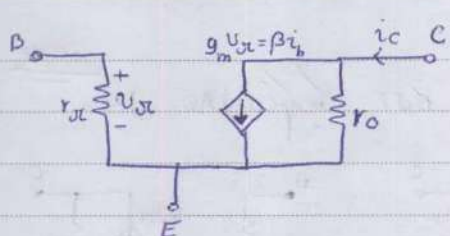 B
g_m v_π = βi_b
i_c
C
r_π
+
v_π
-
r_o
E